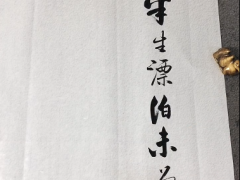 半生漂泊未